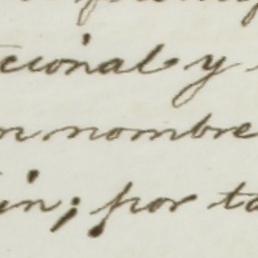 cional y
n nombre
in; por ta